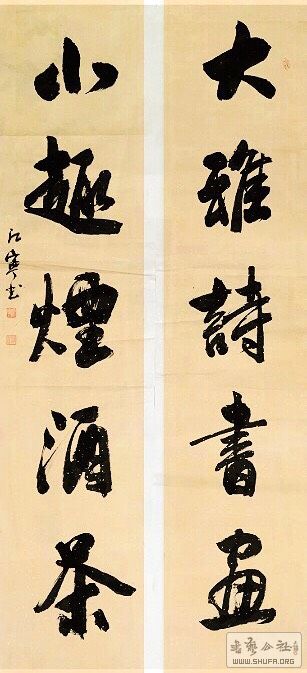 大雅詩書畫
小趣煙酒茶
江寧書
書藝公社
WWW.SHUFA.ORG